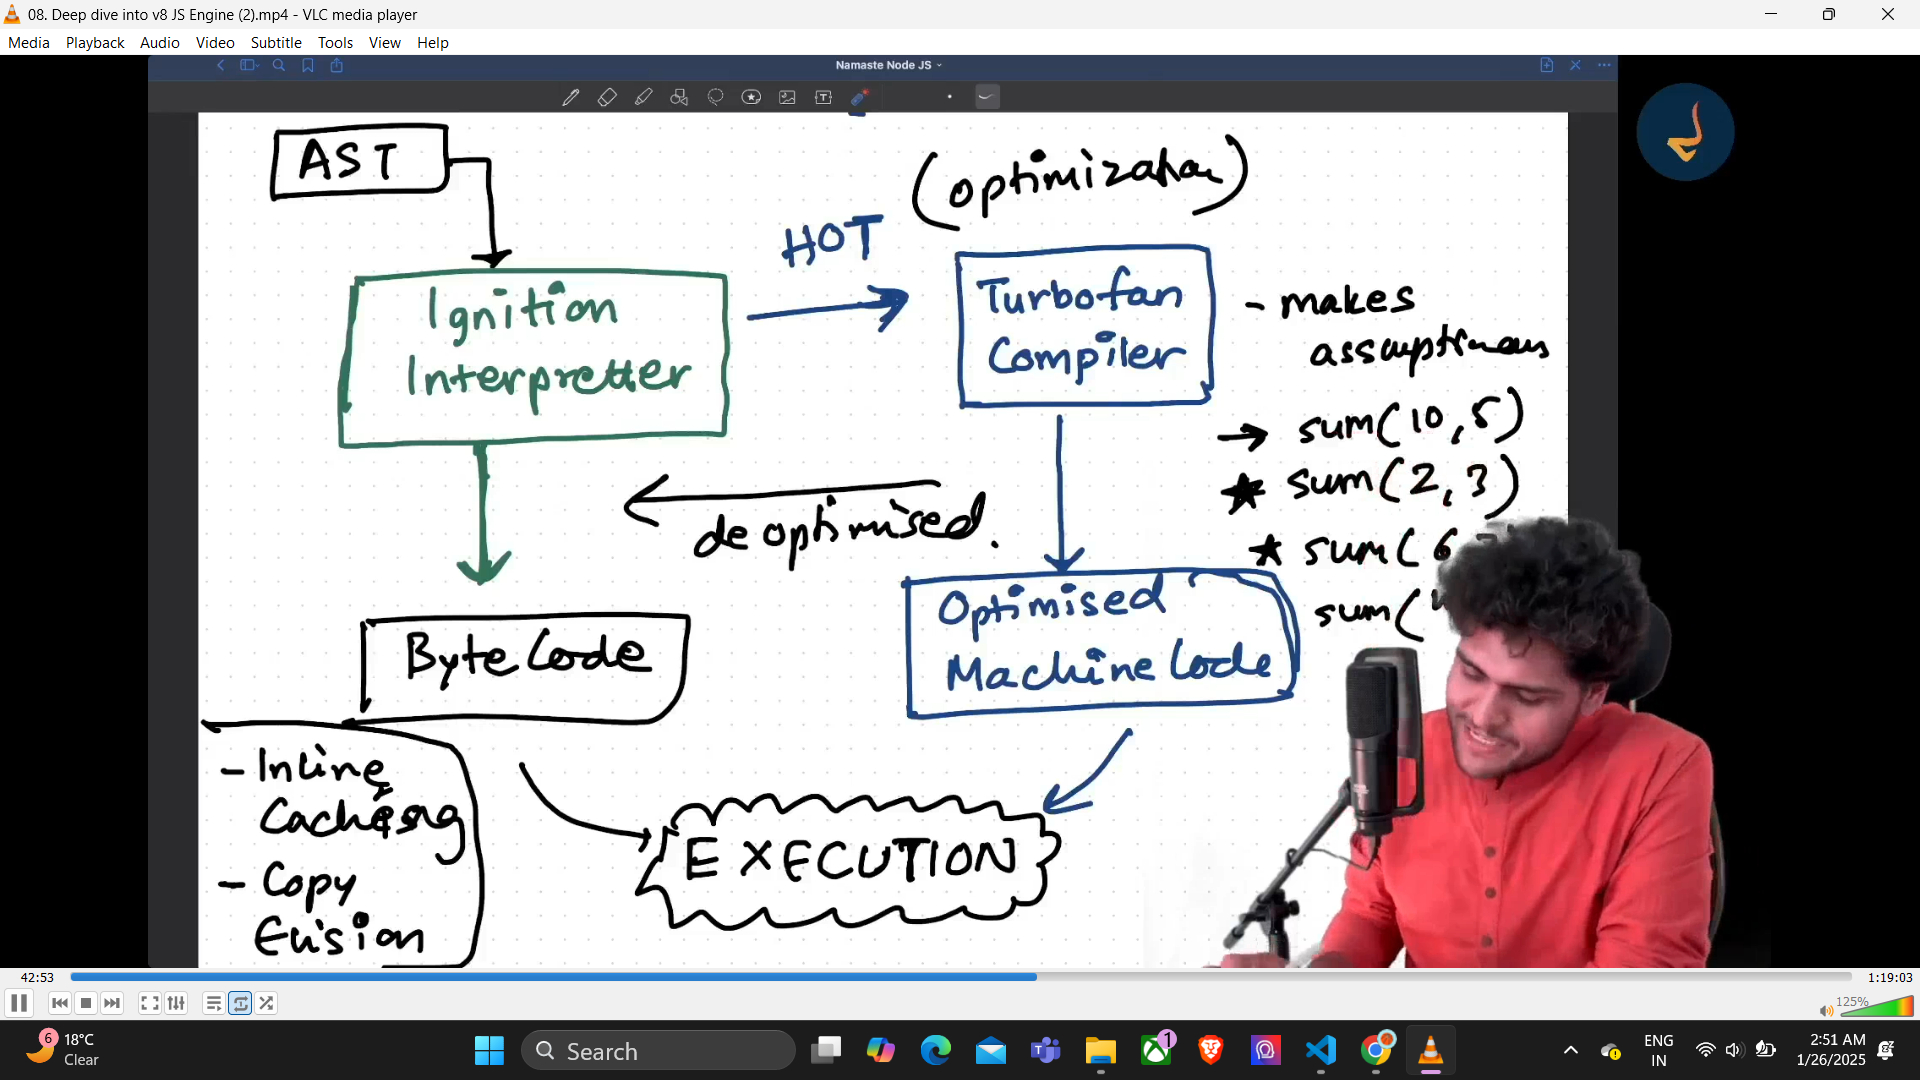 08. Deep dive into v8 JS Engine (2).mp4 - VLC media player
Media Playback Audio Video Subtitle Tools View Help
Namaste Node JS
AST
(optimization)
HOT
Ignition
Interpretter
Turbofan
Compiler
- makes
assumptions
→ sum(10,5)
★ sum(2,3)
★ sum(6
sum(
deoptimised.
Byte Code
Optimised
Machine Code
- Inline
Caching
- Copy
Elision
EXECUTION
42:53
1:19:03
125%
6
18°C
Clear
Search
1
ENG
IN
2:51 AM
1/26/2025